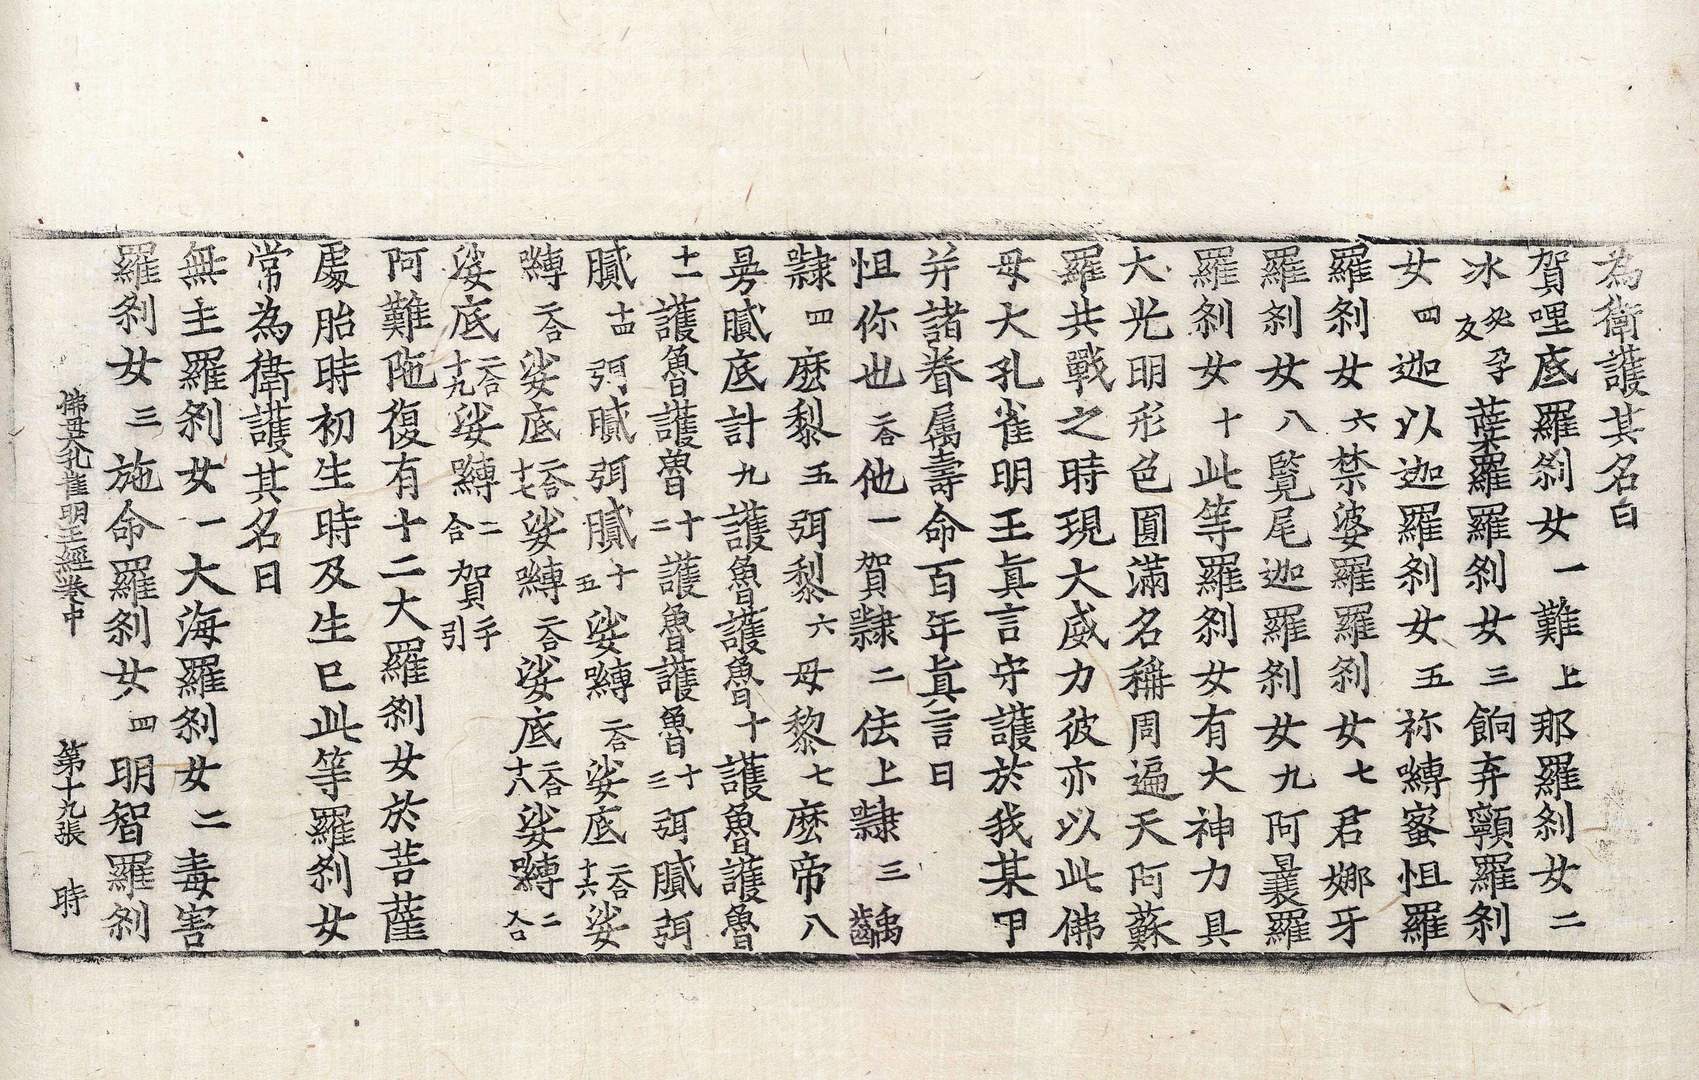 為衛護其名曰
賀哩底羅刹女一難上那羅刹女二
冰孕蘗羅羅刹女三餉弃羅刹
女四迦以迦羅刹女五祢嚩蜜怛羅
羅刹女六禁婆羅羅刹女七君娜牙
羅刹女八覧尾迦羅刹女九阿曩羅
羅刹女十此等羅刹女有大神力具
大光明形色圓滿名稱周遍天阿蘇
羅共戰之時現大威力彼亦以此佛
母大孔雀明王真言守護於我某甲
并諸眷属壽命百年真言曰
怛你也二合他一賀隸二佉上隸三齲
隸四麽黎五弭黎六母黎七麽帝八
曼膩底計九護魯護魯十護魯護魯
十一護魯護魯十二護魯護魯十三弭膩弭
膩十四弭膩弭膩十五娑嚩二合娑底二合十六娑
嚩二合娑底二合十七娑嚩二合娑底二合十八娑嚩二合
娑底二合十九娑嚩二合賀引
阿難陁復有十二大羅刹女於菩薩
處胎時初生時及生已此等羅刹女
常為衛護其名曰
無主羅刹女一大海羅刹女二毒害
羅刹女三施命羅刹女四明智羅刹
佛母大孔雀明王經卷中 第十九張 時